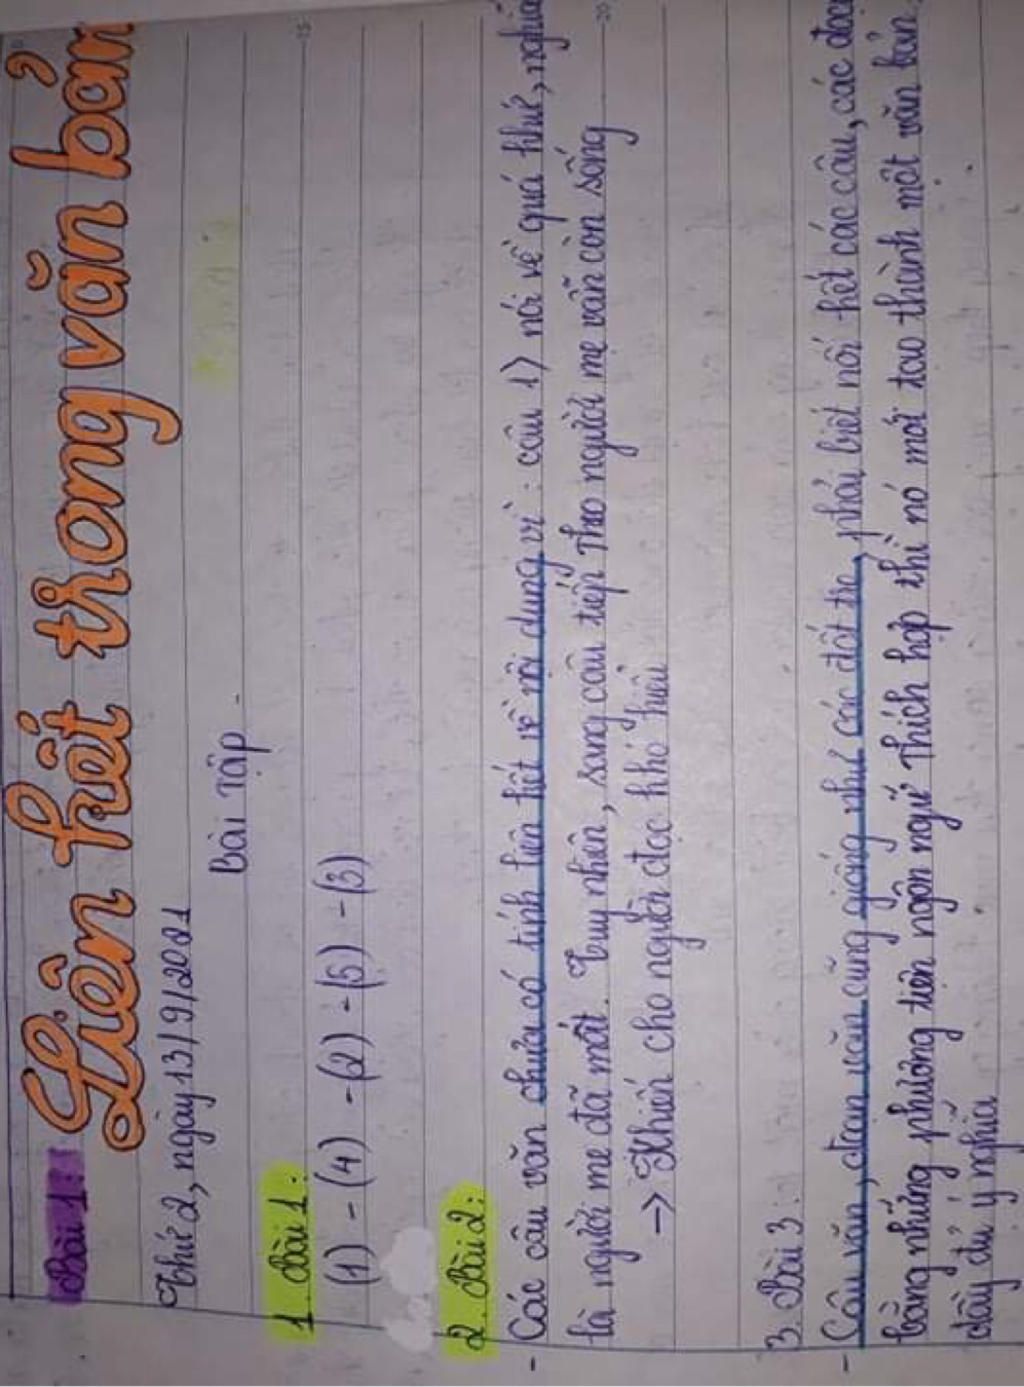 Bài 1: Liên kết trong văn bản
Thứ 2, ngày 13/9/2021
Bài tập
1. Bài 1:
(1) - (4) - (2) - (5) - (3)
2. Bài 2:
- Các câu văn chưa có tính liên kết về nội dung vì: câu 1) nói về quá khứ, nghĩa
là người mẹ đã mất. Tuy nhiên, sang câu tiếp theo người mẹ vẫn còn sống
-> Khiến cho người đọc khó hiểu
3. Bài 3:
- Câu văn, đoạn văn cũng giống như các đốt tre, phải biết nối kết các câu, các đoạn
bằng những phương tiện ngôn ngữ thích hợp thì nó mới tạo thành một văn bản
đầy đủ ý nghĩa